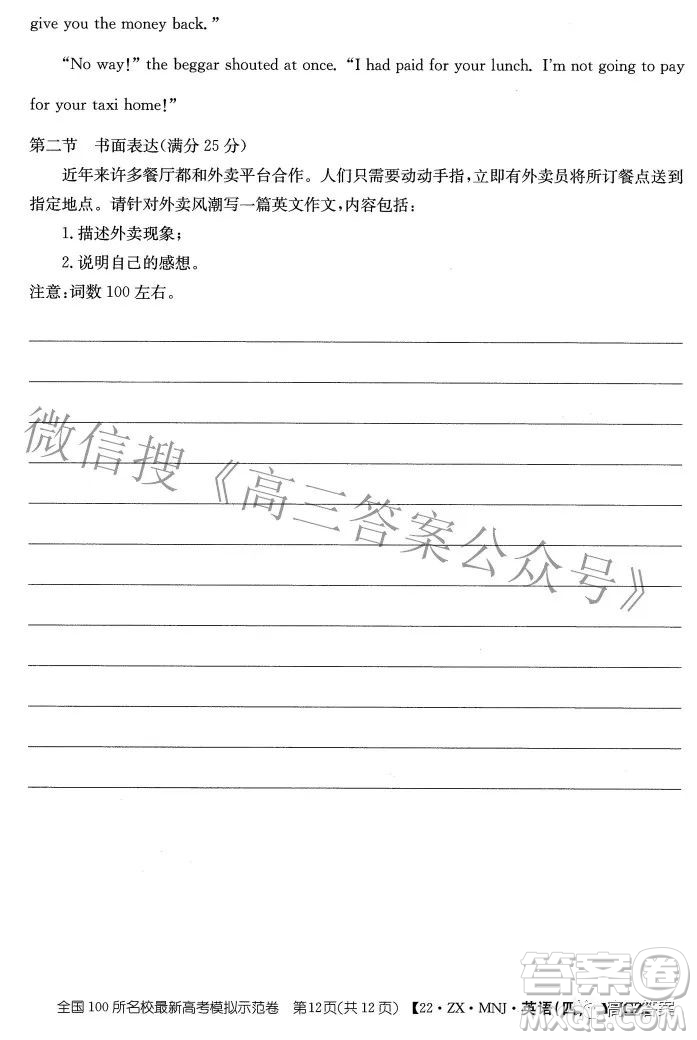 give you the money back.”
“No way!” the beggar shouted at once. “I had paid for your lunch. I'm not going to pay
for your taxi home!”
第二节 书面表达(满分25分)
近年来许多餐厅都和外卖平台合作。人们只需要动动手指,立即有外卖员将所订餐点送到
指定地点。请针对外卖风潮写一篇英文作文,内容包括:
1.描述外卖现象;
2.说明自己的感想。
注意:词数100左右。
微信搜《高三答案公众号》
全国100所名校最新高考模拟示范卷 第12页(共12页) 【22·ZX·MNJ·英语(四
答案圈